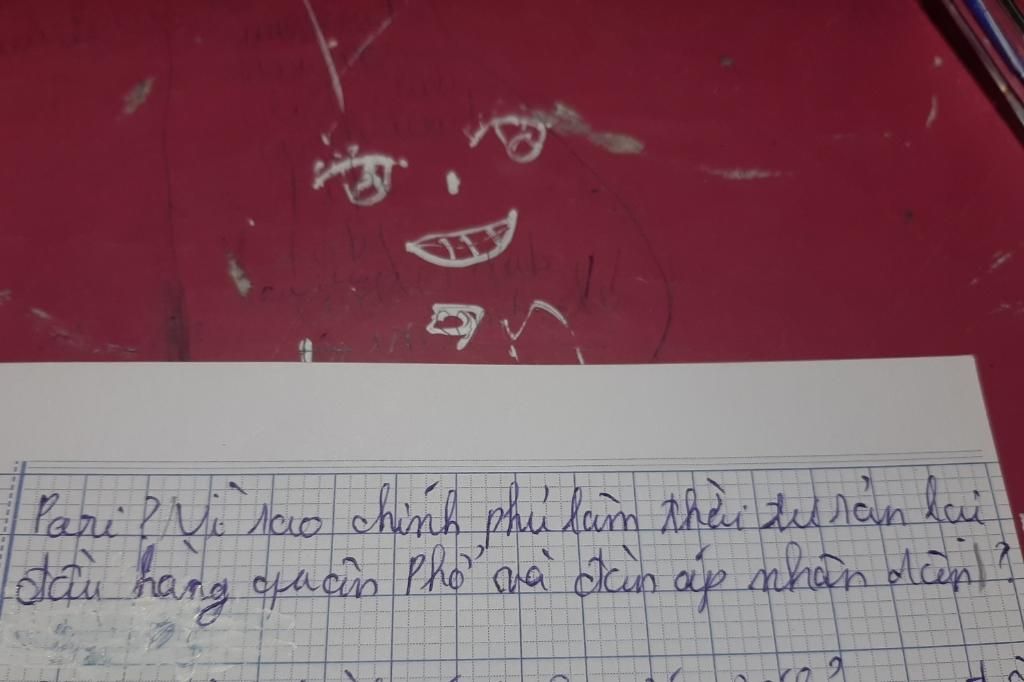 Pari? Vì sao chính phủ lâm thời tư sản lại
đầu hàng quân Phổ và đàn áp nhân dân?